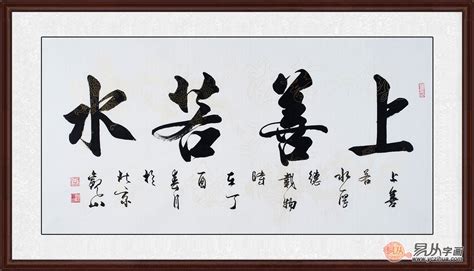 上善若水
上善
若
水厚
德
載物
時
在丁
酉
春月
於
北京
易从字画
www.yczihua.com